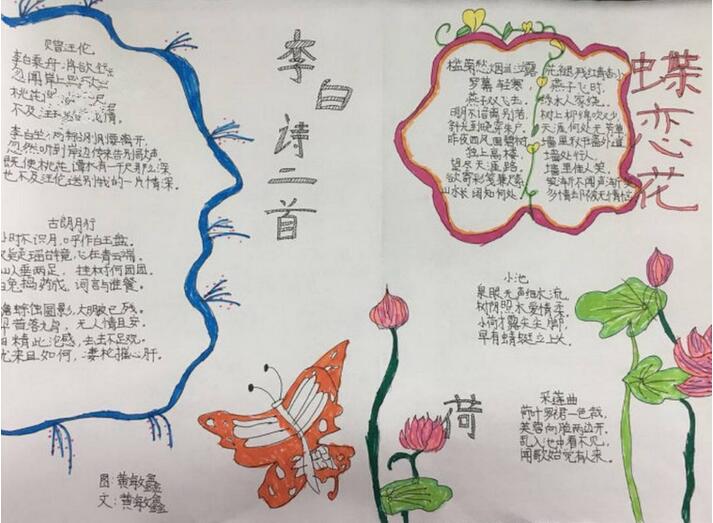 李白诗二首
赠汪伦
李白乘舟将欲行
忽闻岸上
桃花
不及汪
李白坐
忽然听到岸边传来告别歌声
既使桃花潭水有一千尺那么深
也不及汪伦送别我的一片情深
古朗月行
小时不识月，呼作白玉盘。
疑瑶台镜，飞在青云端。
仙人垂两足，桂树何团团
白兔捣药成，问言与谁餐。
蟾蜍蚀圆影，大明夜已残。
落九乌，天人清且安。
精此沦惑，去去不足观。
忧来其如何，凄怆摧心肝。
图:黄敏鑫
文:黄敏鑫
蝶恋花
槛菊愁烟兰泣露
罗幕轻寒
燕子双飞去
明月不谙离别苦
斜光到晓穿朱户
昨夜西风凋碧树
独上高楼
望尽天涯路
欲寄彩笺兼尺素
山水长阔知何处
花褪残红青杏小
燕子飞时
绿水人家绕
树上柳绵吹又少
天涯何处无芳草
墙里秋千墙外道
墙外行人
墙里佳人笑
笑渐不闻声渐
多情却被无情恼
荷
小池
泉眼无声细水流，
树阴照水爱情柔，
小荷才露尖尖脚，
早有蜻蜓立上头。
采莲曲
荷叶罗裙一色裁，
芙蓉向脸两边开。
乱入池中看不见，
闻歌始觉有人来。